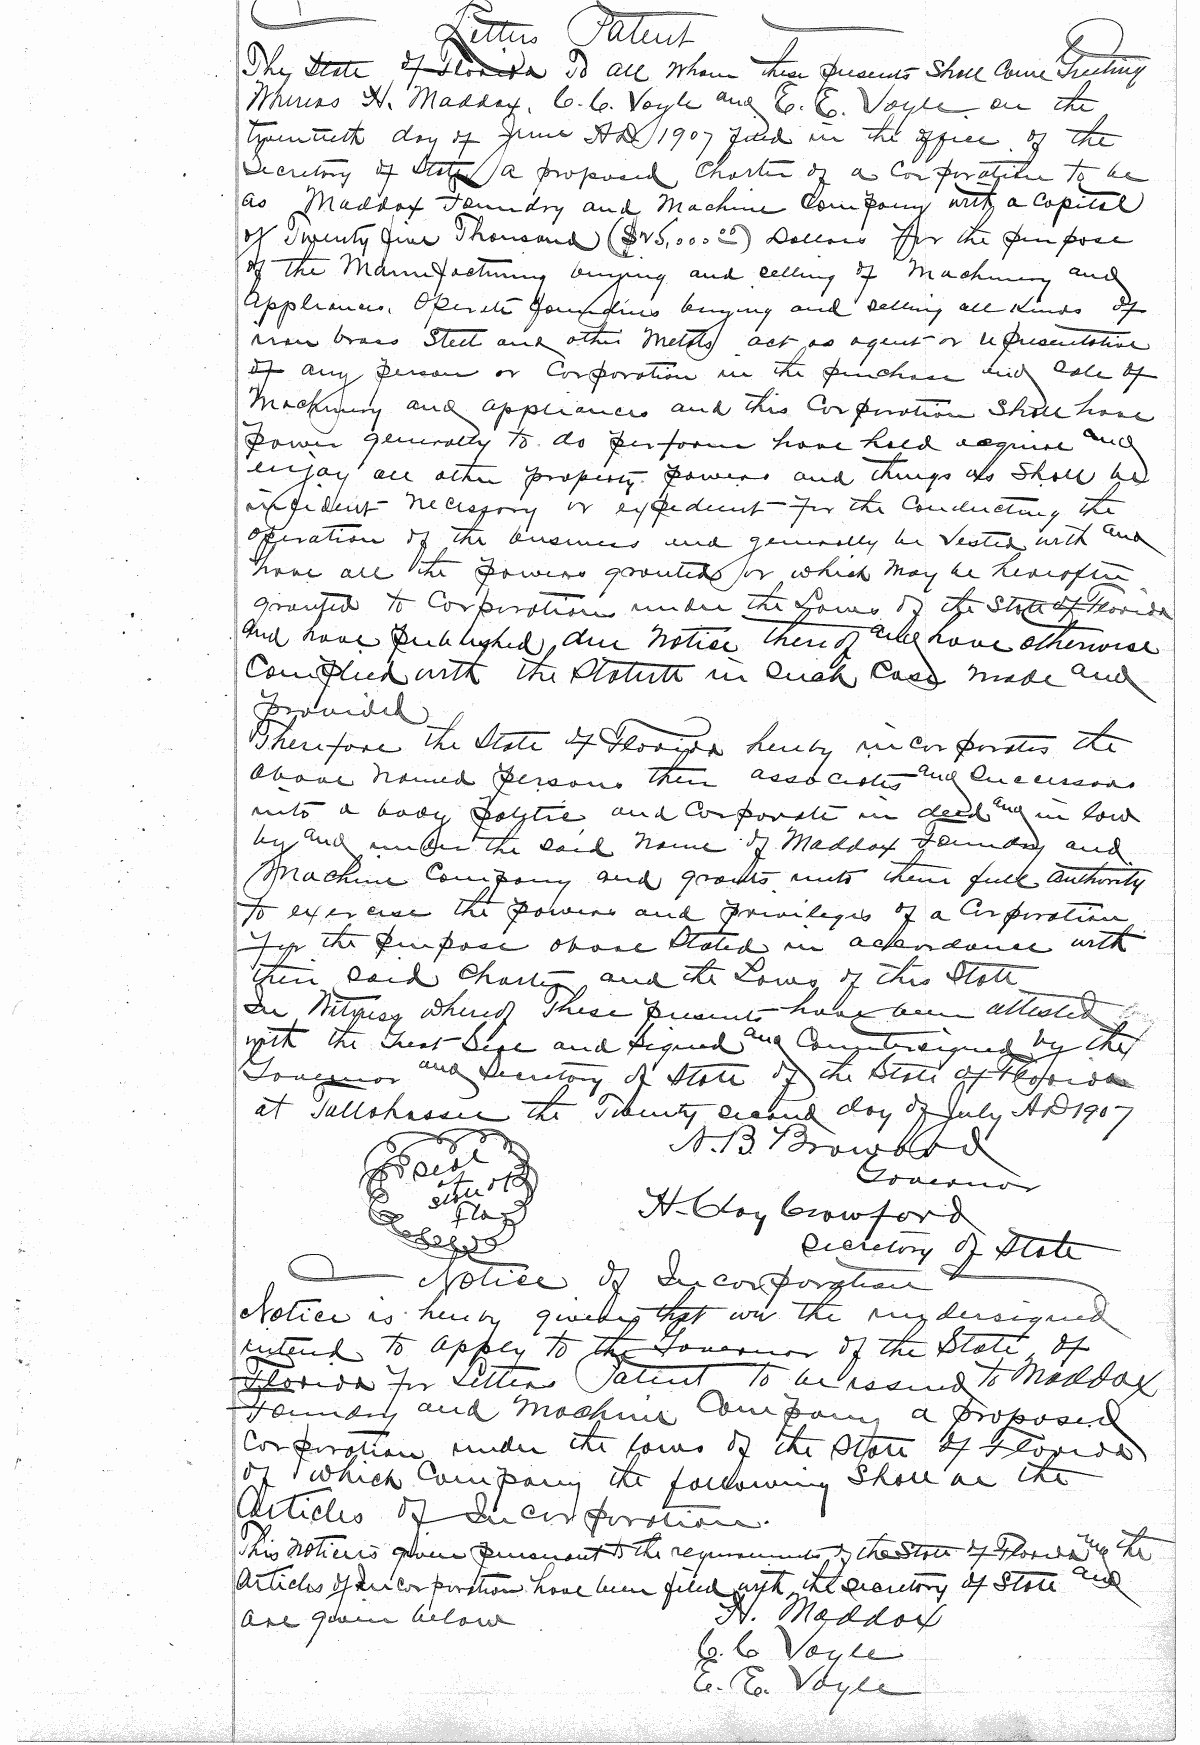 Letters Patent
The State of Florida To all whom these presents Shall Come Greeting
Whereas H. Maddox, C. C. Voyle and E. E. Voyle on the
twentieth day of June AD 1907 filed in the office of the
Secretary of State a proposed Charter of a Corporation to be
as Maddox Foundry and Machine Company with a Capital
of Twenty five Thousand ($25,000.00) Dollars for the purpose
of the Manufacturing buying and selling of Machinery and
Appliances. Operate foundries buying and selling all Kinds of
iron brass Steel and other Metals, act as agent or representative
of any person or Corporation in the purchase and Sale of
Machinery and appliances and this Corporation Shall have
power generally to do perform have hold acquire and
enjoy all other property powers and things as Shall be
incident necessary or expedient for the Conducting the
operation of the business and generally be Vested with and
have all the powers granted or which may be hereafter
granted to Corporations under the Laws of the State of Florida
and have published due notice thereof and have otherwise
Complied with the Statute in such Case made and
provided
Therefore the State of Florida hereby incorporates the
above named persons their associates and successors
into a body politic and Corporate in deed and in law
by and under the said name of Maddox Foundry and
Machine Company and grants unto them full authority
to exercise the powers and privileges of a Corporation
for the purpose above Stated in accordance with
their said Charter and the Laws of this State
In Witness whereof These presents have been attested
with the Great Seal and Signed and Countersigned by the
Governor and Secretary of State of the State of Florida
at Tallahassee the Twenty second day of July AD 1907
N. B. Broward
Governor
Seal
of
State of
Fla
H. Clay Crawford
Secretary of State
Notice of Incorporation
Notice is hereby given that we the undersigned
intend to apply to the Governor of the State of
Florida for Letters Patent to be issued to Maddox
Foundry and Machine Company a proposed
Corporation under the laws of the State of Florida
of which Company the following Shall be the
Articles of Incorporation.
This notice is given pursuant to the requirements of the State of Florida and the
Articles of Incorporation have been filed with the Secretary of State and
are given below
H. Maddox
C. C. Voyle
E. E. Voyle